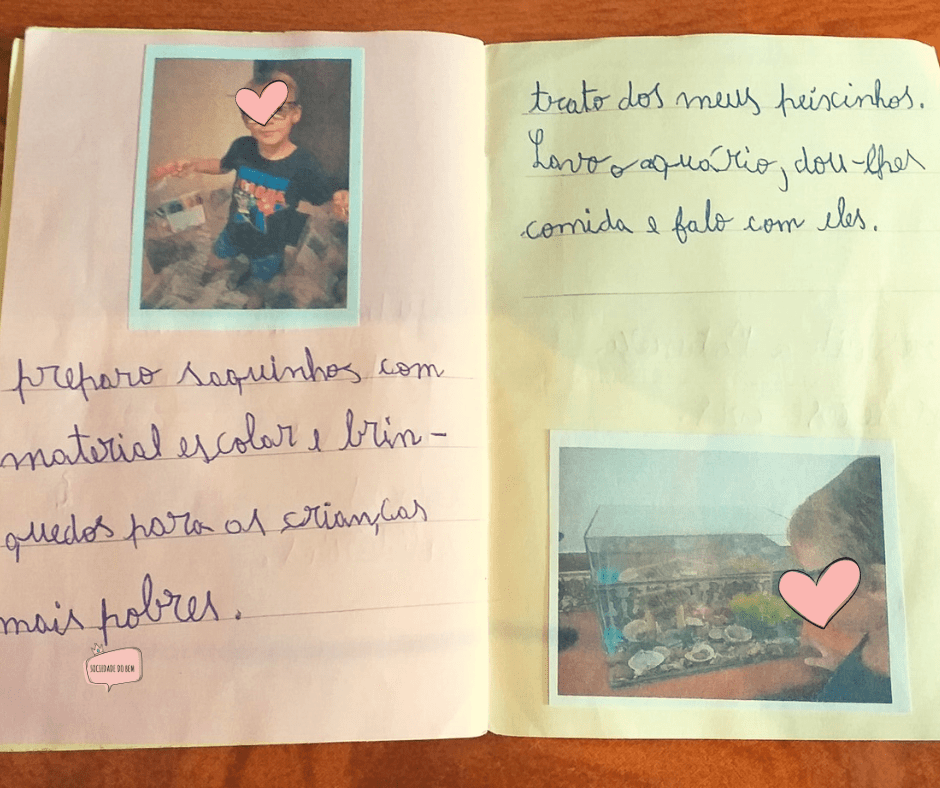 preparo saquinhos com
material escolar e brin-
quedos para as crianças
mais pobres.
SOCIEDADE DO BEM
trato dos meus peixinhos.
Lavo o aquário, dou-lhes
comida e falo com eles.